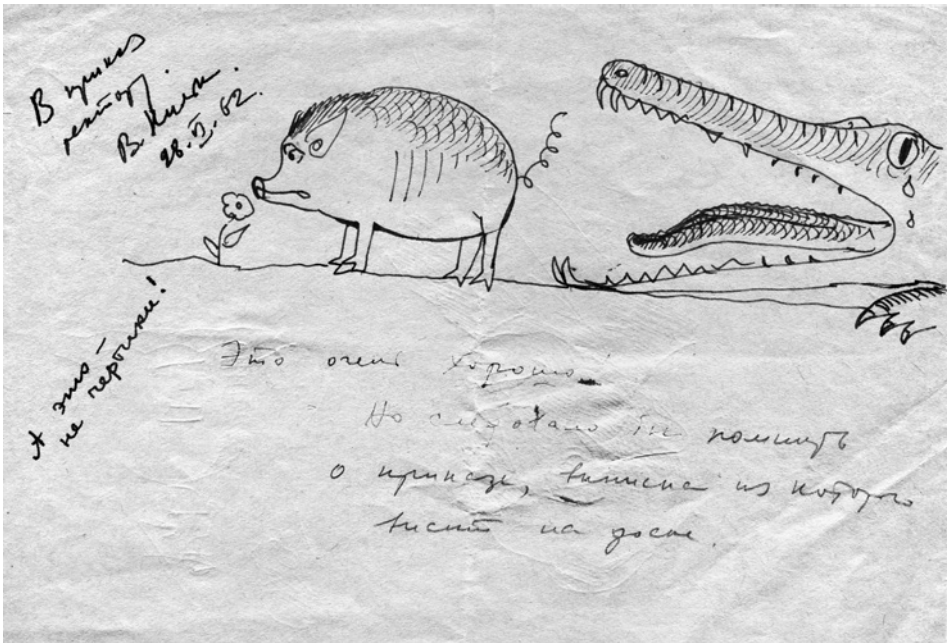 В приказ
ректору.
В.
28.VI.62.
А это
не чертики!
Это очень хорошо.
Но следовало бы помнить
о приказе, выписка из которого
висит на доске.